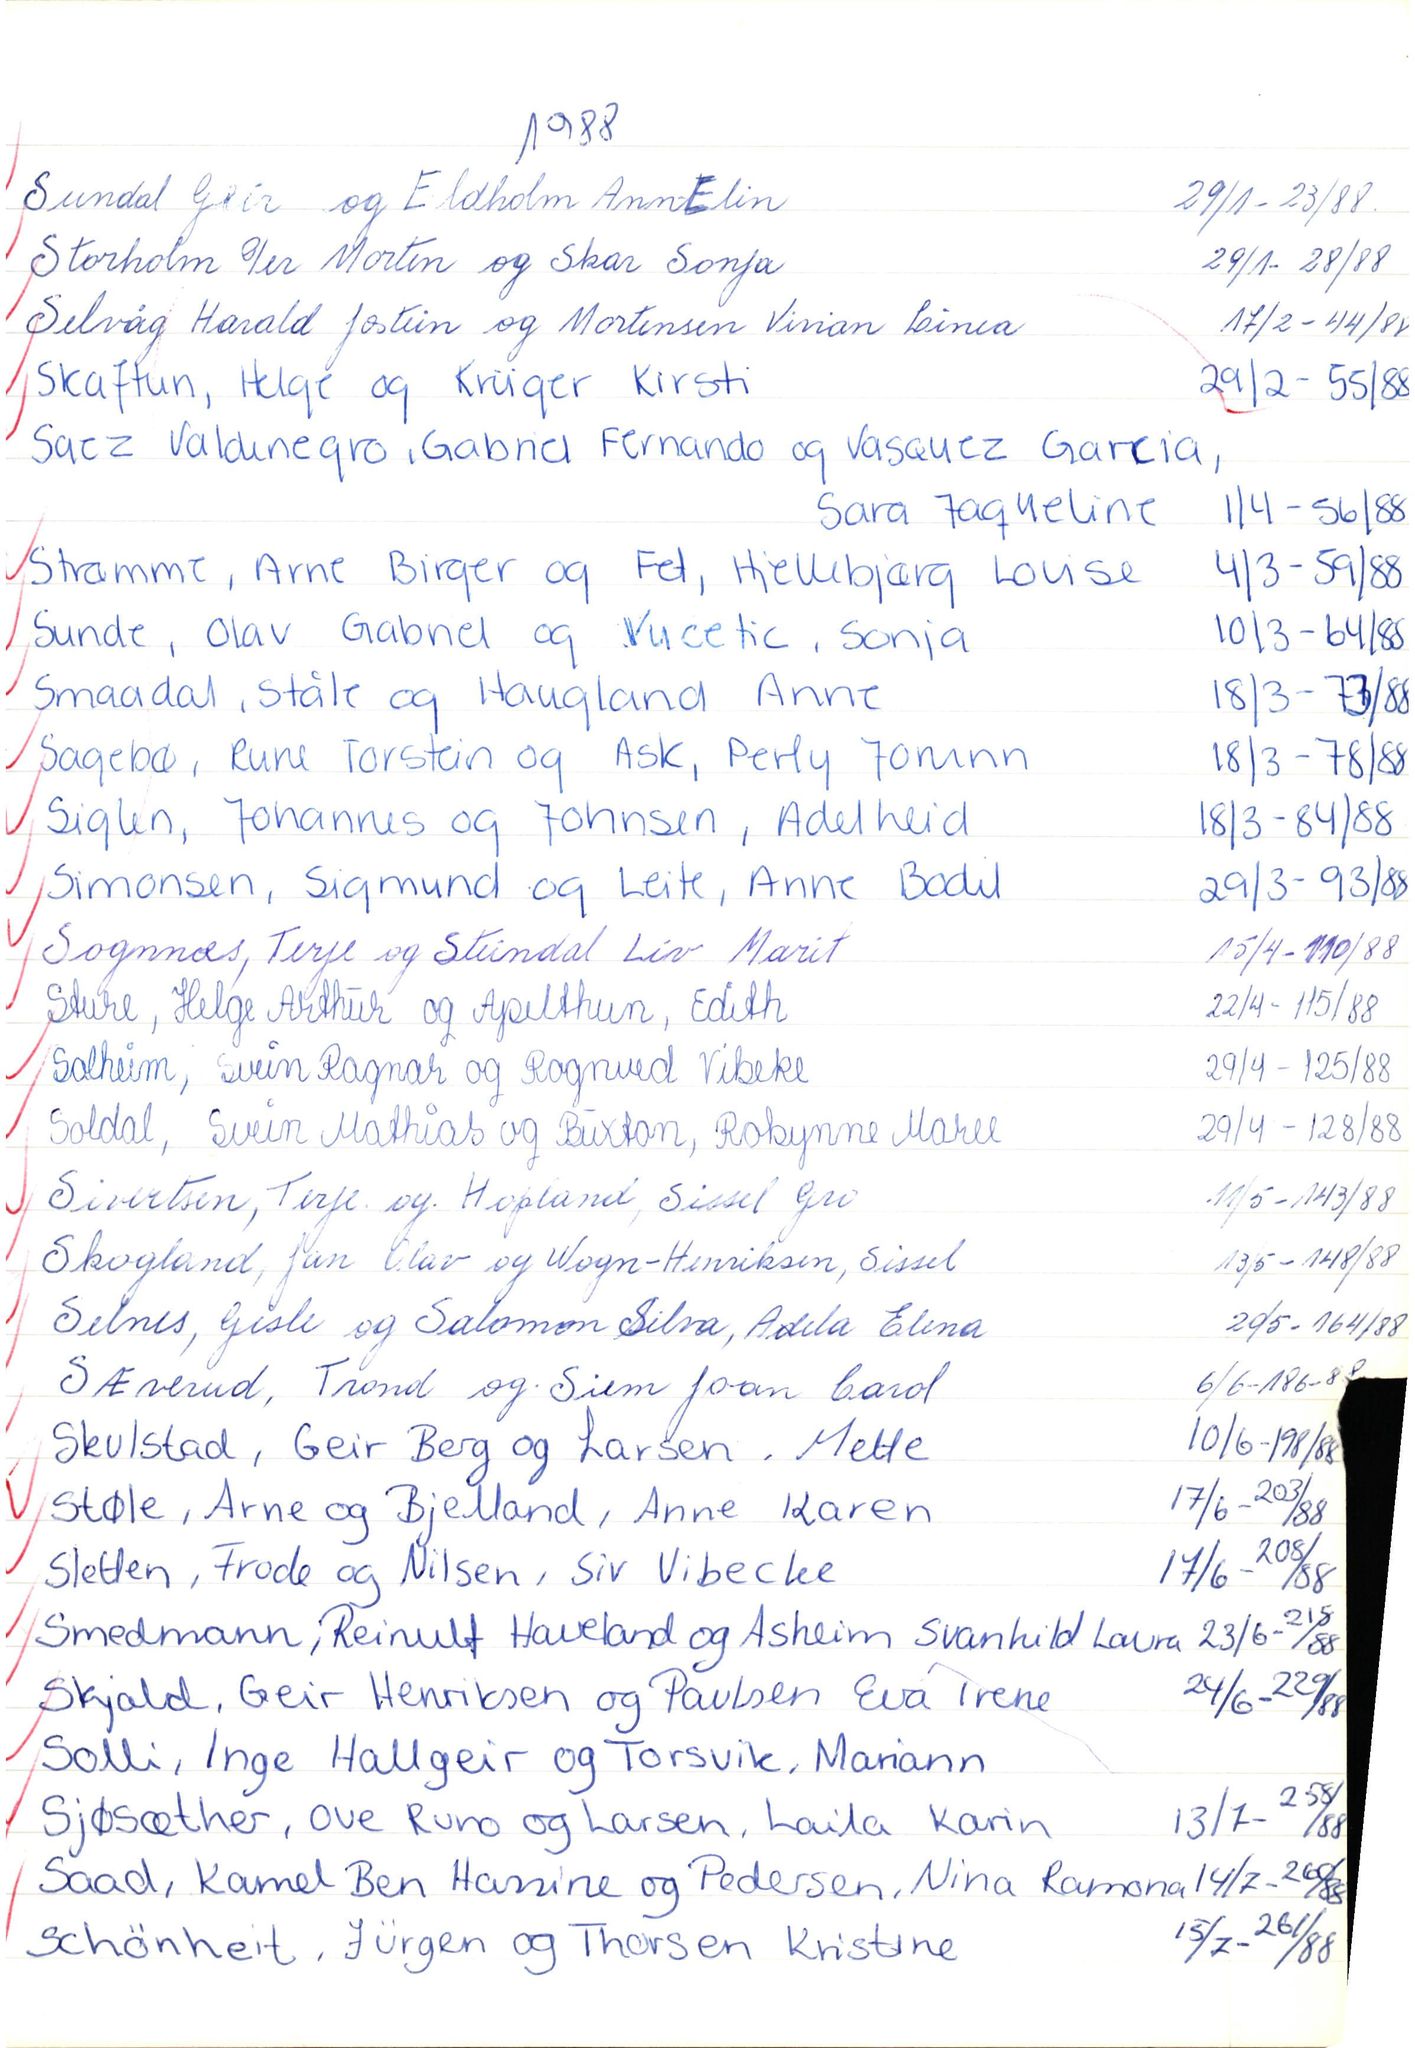 1988
Sundal Geir og Eldholm AnnElin 29/1 - 23/88.
Storholm Per Morten og Skar Sonja 29/1 - 28/88
Selvåg Harald Jostein og Mortensen Vivian Linea 17/2 - 44/88
Skaftun, Helge og Krüger Kirsti 29/2 - 55/88
Saez Valdenegro, Gabriel Fernando og Vasquez Garcia,
Sara Jaqueline 1/4 - 56/88
Strømme, Arne Birger og Fet, Hjellebjørg Louise 4/3 - 59/88
Sunde, Olav Gabriel og Vucetic, Sonja 10/3 - 64/88
Smaadal, Ståle og Haugland Anne 18/3 - 73/88
Sagebø, Rune Torstein og Ask, Perly Jorunn 18/3 - 78/88
Siglen, Johannes og Johnsen, Adelheid 18/3 - 84/88
Simonsen, Sigmund og Leite, Anne Bodil 29/3 - 93/88
Sognnæs, Terje og Steindal Liv Marit 15/4 - 110/88
Sture, Helge Arthur og Apelthun, Edith 22/4 - 115/88
Solheim, Svein Ragnar og Rognved Vibeke 29/4 - 125/88
Soldal, Svein Mathias og Buxton, Robynne Maree 29/4 - 128/88
Sivertsen, Terje og. Hopland, Sissel Gro 11/5 - 143/88
Skogland, Jan Olav og Wogn-Henriksen, Sissel 13/5 - 148/88
Selnes, Gisle og Salomon Silva, Adela Elena 20/5 - 164/88
SÆverud, Trond og. Siem Joan Carol 6/6 - 186-88
Skulstad, Geir Berg og Larsen, Mette 10/6 - 198/88
Støle, Arne og Bjelland, Anne Karen 17/6 - 203/88
Sletten, Frode og Nilsen, Siv Vibecke 17/6 - 208/88
Smedmann, Reinulf Haveland og Asheim Svanhild Laura 23/6 - 215/88
Skjold, Geir Henriksen og Paulsen Eva Irene 24/6 - 229/88
Solli, Inge Hallgeir og Torsvik, Mariann
Sjøsæther, Ove Runo og Larsen, Laila Karin 13/7 - 258/88
Saad, Kamel Ben Hassine og Pedersen, Nina Ramona 14/7 - 260/88
Schönheit, Jürgen og Thorsen Kristine 15/7 - 261/88